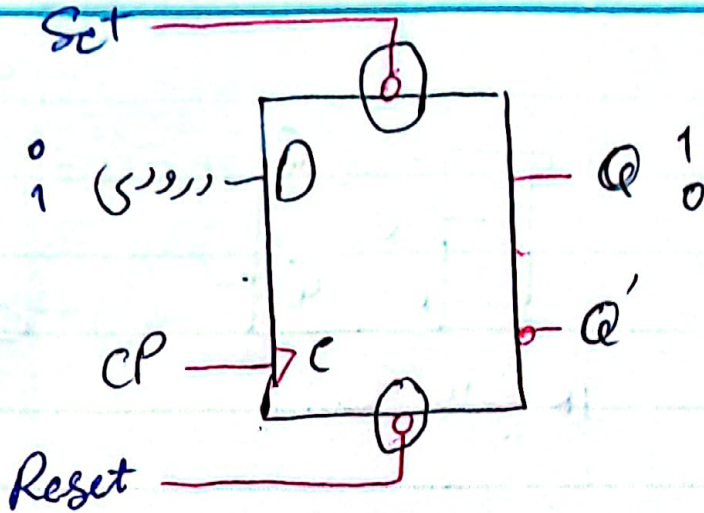 Set
0
1
ورودی D
Q 1
0
CP C
Q'
Reset